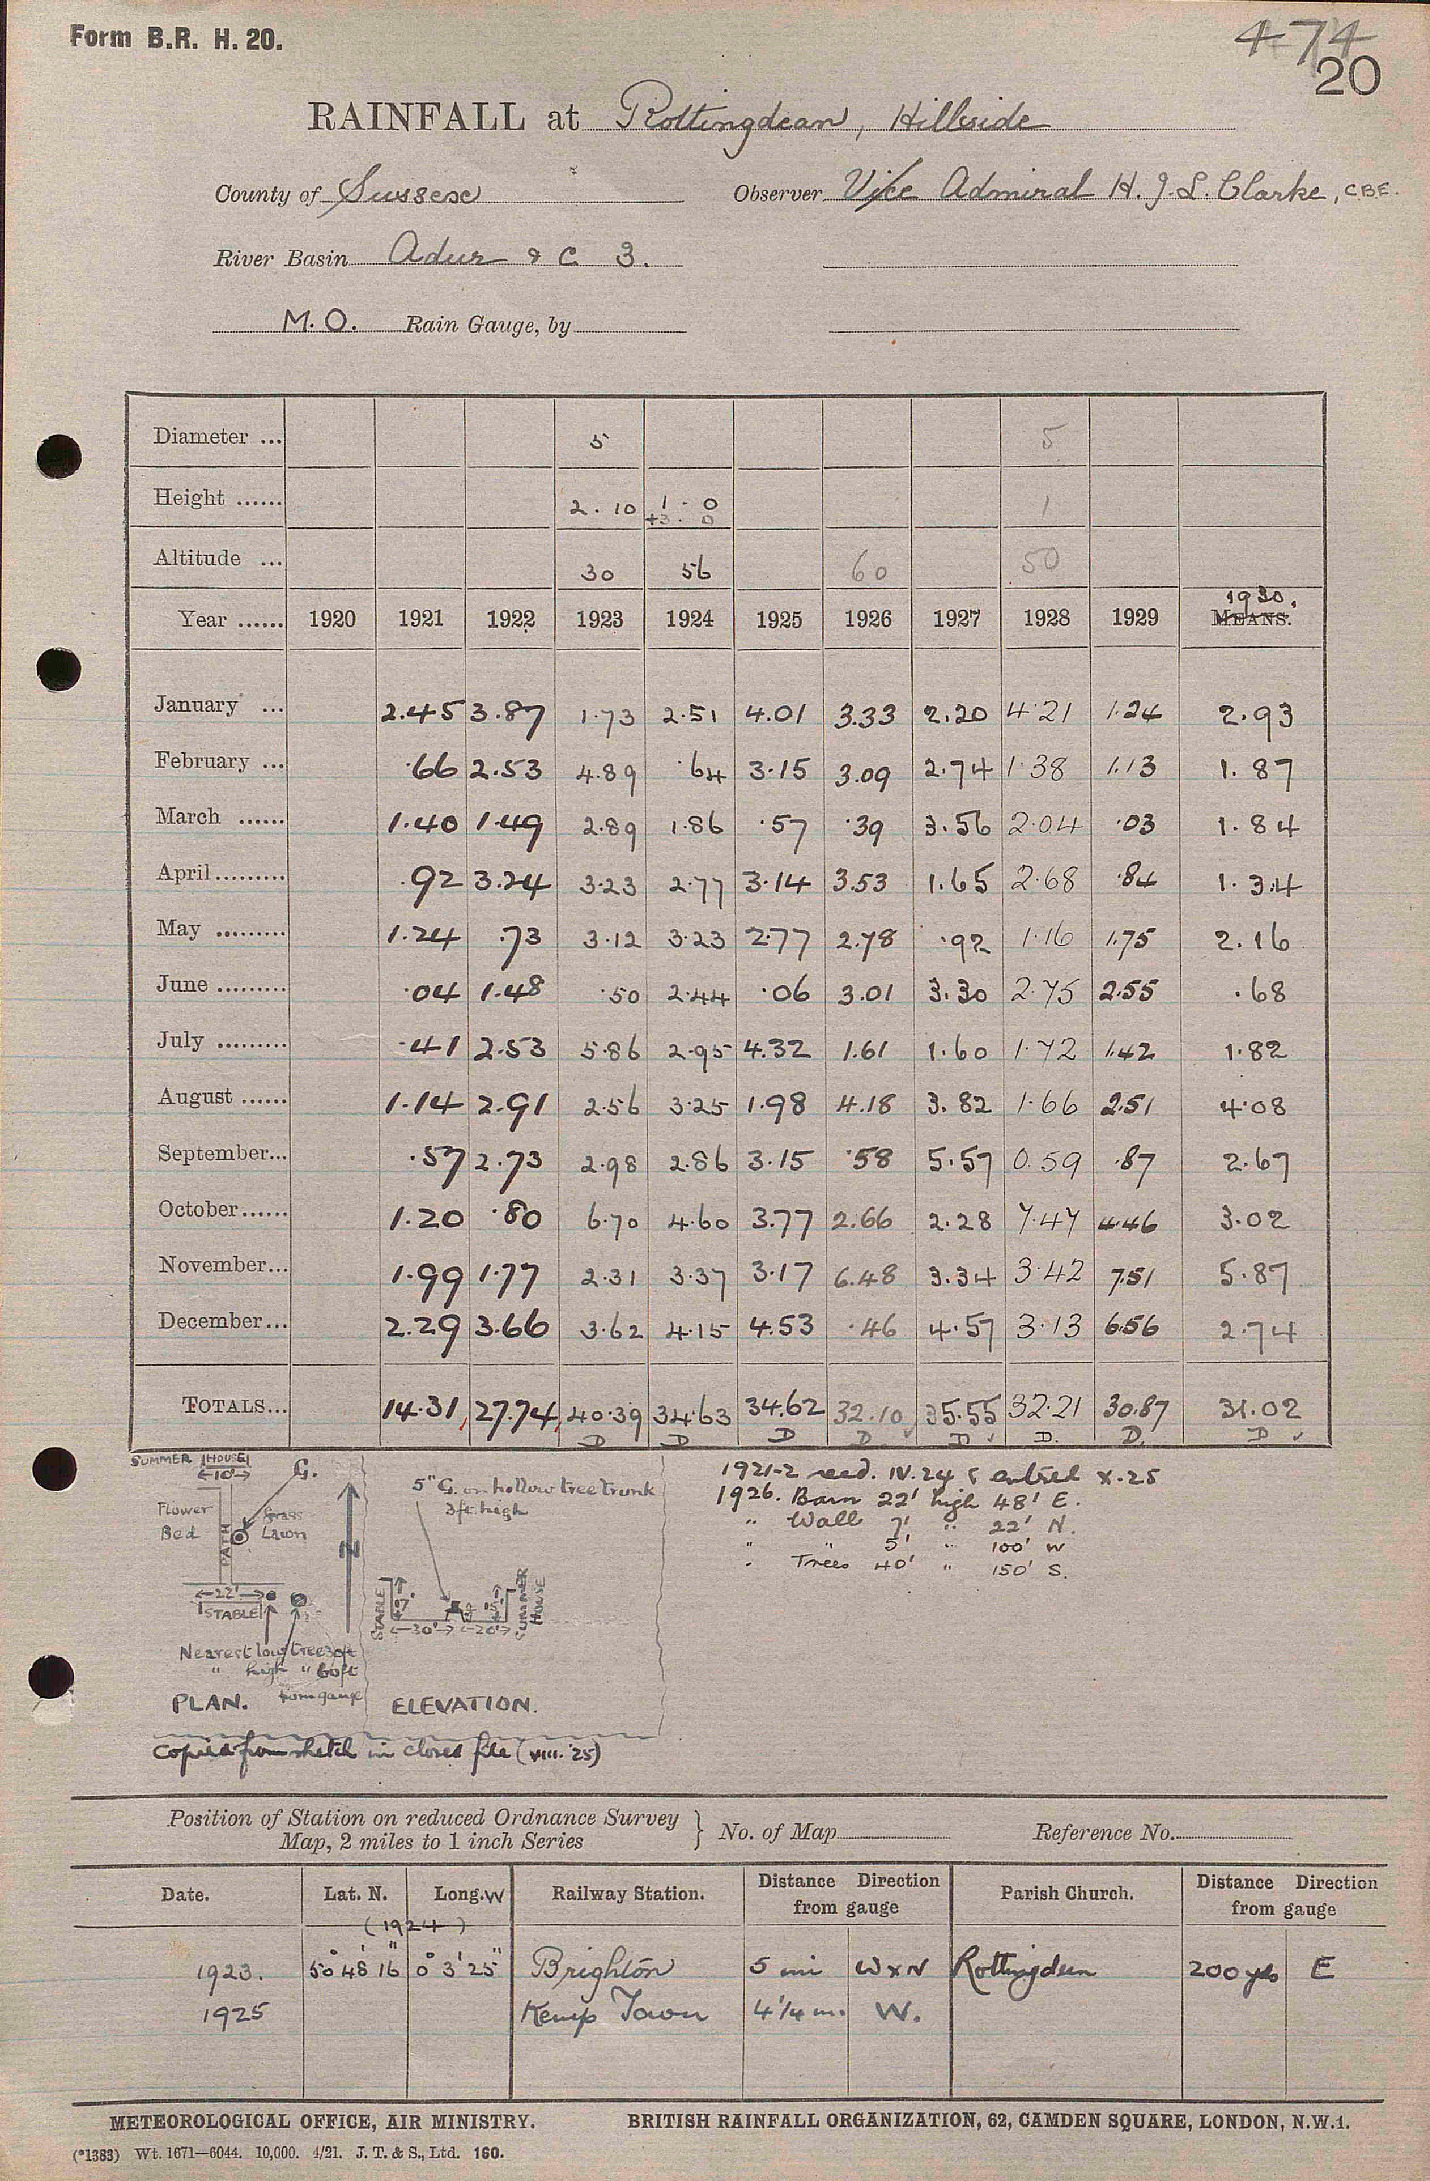 Form B.R. H. 20.
474
20
RAINFALL at Rottingdean, Hillside
County of Sussex Observer Vice Admiral H. J. L. Clarke, C.B.E.
River Basin Adur & C 3.
M.O. Rain Gauge, by
Diameter ... 5 5
Height ...... 2.10 1-0 1
+3.0
Altitude ... 30 56 60 50
1930.
Year ...... 1920 1921 1922 1923 1924 1925 1926 1927 1928 1929 MEANS.
January ... 2.45 3.87 1.73 2.51 4.01 3.33 2.20 4.21 1.24 2.93
February ... .66 2.53 4.89 .64 3.15 3.09 2.74 1.38 1.13 1.87
March ...... 1.40 1.49 2.89 1.86 .57 .39 3.56 2.04 .03 1.84
April......... .92 3.24 3.23 2.77 3.14 3.53 1.65 2.68 .84 1.34
May ......... 1.24 .73 3.12 3.23 2.77 2.78 .92 1.16 1.75 2.16
June ......... .04 1.48 .50 2.44 .06 3.01 3.30 2.75 2.55 .68
July ......... .41 2.53 5.86 2.95 4.32 1.61 1.60 1.72 1.42 1.82
August ...... 1.14 2.91 2.56 3.25 1.98 4.18 3.82 1.66 2.51 4.08
September... .57 2.73 2.98 2.86 3.15 .58 5.57 0.59 .87 2.67
October...... 1.20 .80 6.70 4.60 3.77 2.66 2.28 7.47 4.46 3.02
November... 1.99 1.77 2.31 3.37 3.17 6.48 3.34 3.42 7.51 5.87
December... 2.29 3.66 3.62 4.15 4.53 .46 4.57 3.13 6.56 2.74
TOTALS... 14.31 27.74 40.39 34.63 34.62 32.10 35.55 32.21 30.87 31.02
D D D D D D. D. D
SUMMER HOUSE
←10'→ G.
Flower Bed
PATH
Grass Lawn
N
←22'→
STABLE
Nearest low tree 30ft
" high " 60ft
from gauge
PLAN.
5" G. on hollow tree trunk
3ft. high
STABLE
←30'→ ←20'→
SUMMER HOUSE
ELEVATION.
Copied from sketch in closed file (VIII. '25)
1921-2 recd. IV.24 & entred X.25
1926. Barn 22' high 48' E.
" Wall 7' " 22' N.
" " 5' " 100' W
" Trees 40' " 150' S.
Position of Station on reduced Ordnance Survey
Map, 2 miles to 1 inch Series } No. of Map Reference No.
Date. Lat. N. Long. W Railway Station. Distance Direction from gauge Parish Church. Distance Direction from gauge
(1924)
1923. 50° 48' 16" 0° 3' 25" Brighton 5 mi W x N Rottingdean 200 yds E
1925 Kemp Town 4 1/4 m. W.
METEOROLOGICAL OFFICE, AIR MINISTRY. BRITISH RAINFALL ORGANIZATION, 62, CAMDEN SQUARE, LONDON, N.W.1.
(*1383) Wt. 1671—6044. 10,000. 4/21. J. T. & S., Ltd. 160.